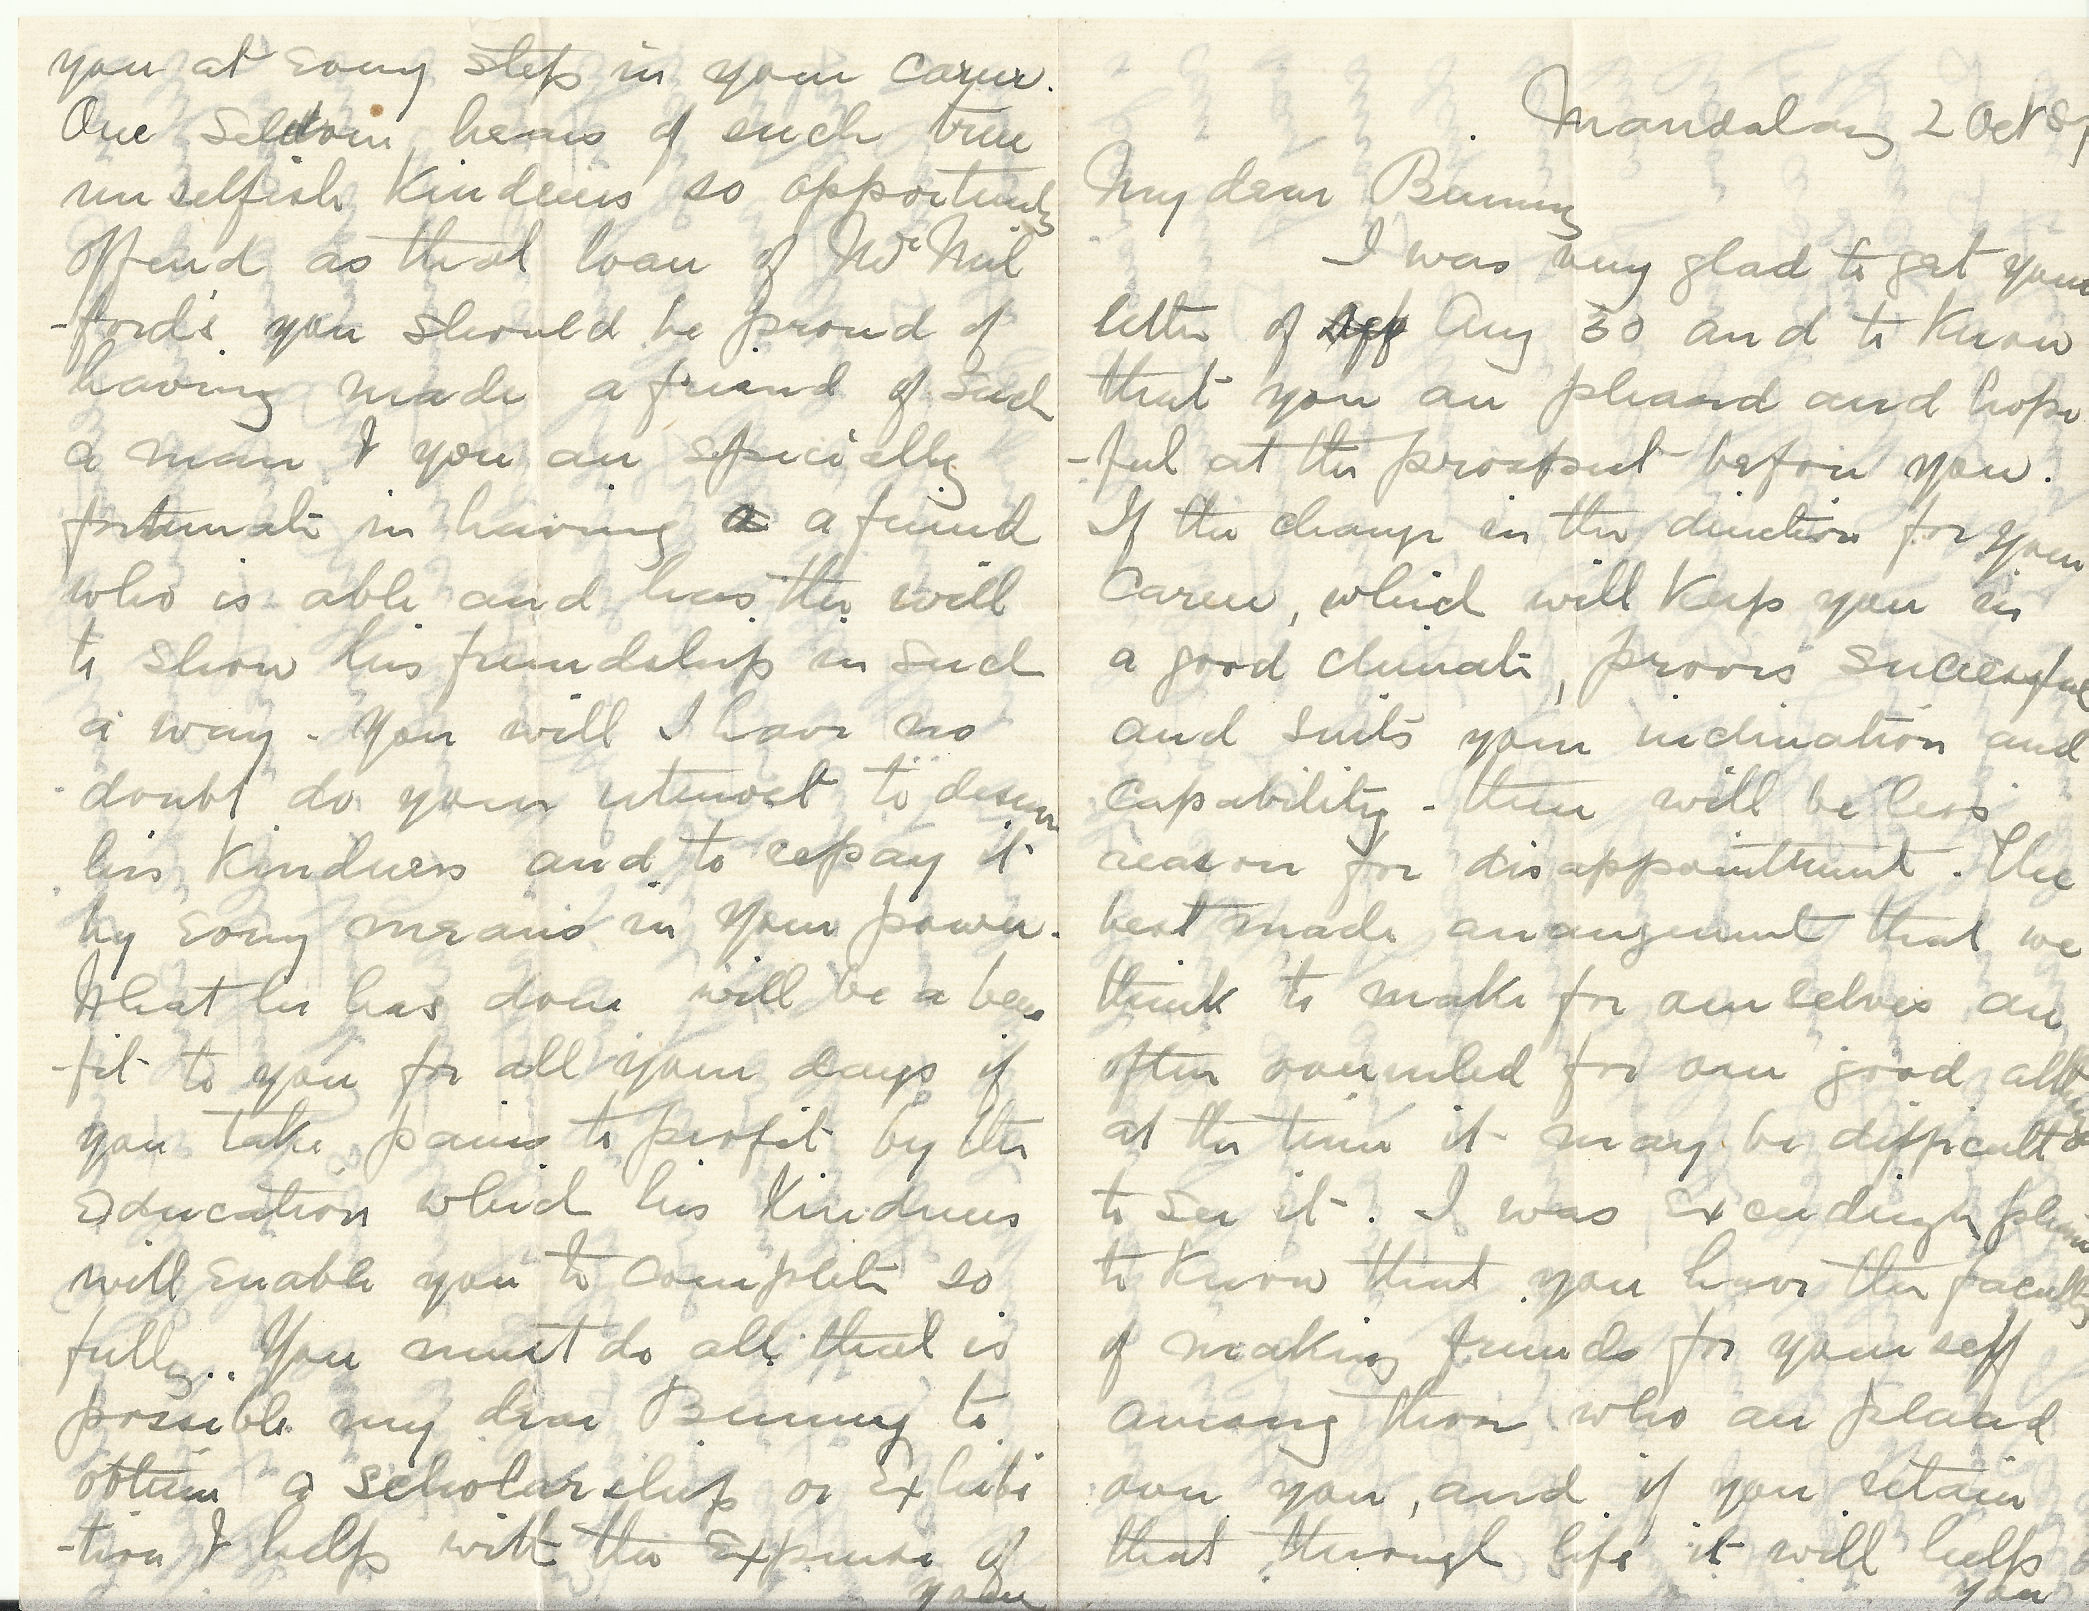 Mandalay 2 Oct 89
My dear Bunny
I was very glad to get your
letter of Aug 30 and to know
that you are pleased and hope
-ful at the prospect before you.
If the change in the direction for your
career, which will keep you in
a good climate, proves successful
and suits your inclination and
capability - there will be less
reason for disappointment. The
best made arrangement that we
think to make for ourselves are
often overruled for our good altho
at the time it may be difficult
to see it. I was exceedingly pleased
to know that you have the faculty
of making friends for yourself
among those who are placed
over you, and if you retain
that through life it will help
you
you at every step in your career.
One seldom hears of such true
unselfish kindness so opportunely
offered as that loan of Mr Mil
-ford's you should be proud of
having made a friend of such
a man & you are specially
fortunate in having a friend
who is able and has the will
to show his friendship in such
a way - You will I have no
doubt do your utmost to deserve
his kindness and to repay it
by every means in your power.
What he has done will be a bene
-fit to you for all your days if
you take pains to profit by the
Education which his kindness
will enable you to complete so
fully.. You must do all that is
possible my dear Bunny to
obtain a scholarship or Exhibi
-tion & help with the Expense of
your